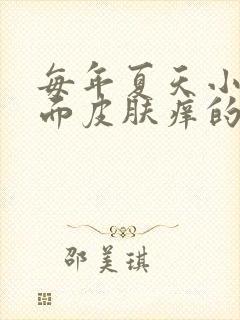 每年夏天小
而皮肤痒的
邵美琪